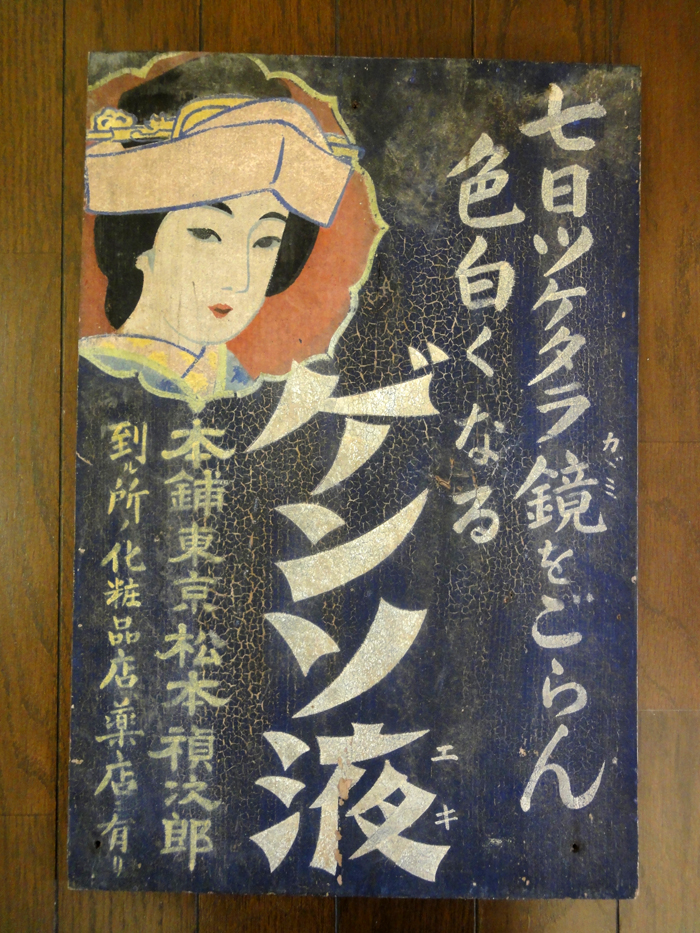 七日ツケタラ鏡をごらん
カゞミ
色白くなる
ゲンソ液
エキ
本鋪東京松本禎次郎
到ル所ノ化粧品店、薬店ニ有リ